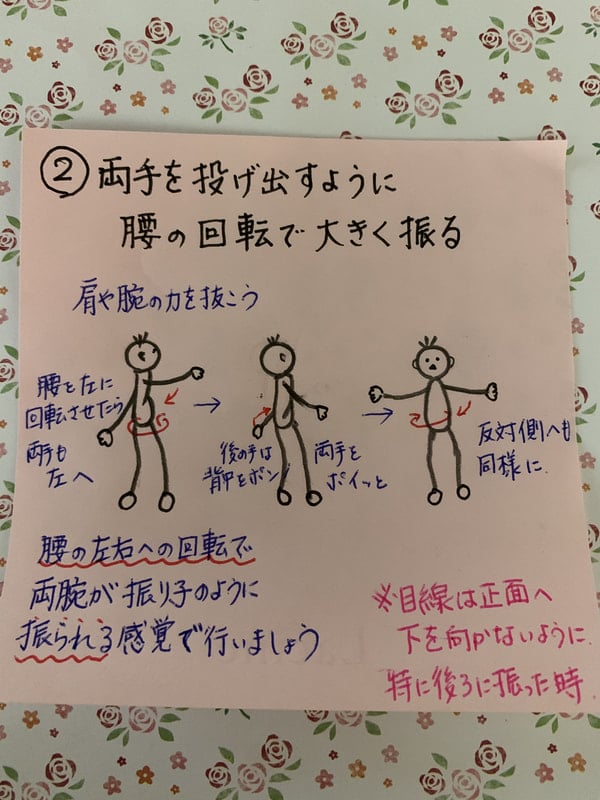 ② 両手を投げ出すように
腰の回転で大きく振る
肩や腕の力を抜こう
腰を左に
回転させたら
両手も
左へ
後の手は
背中をポン
両手を
ポイッと
反対側へも
同様に.
腰の左右への回転で
両腕が振り子のように
振られる感覚で行いましょう
※目線は正面へ
下を向かないように.
特に後ろに振った時.